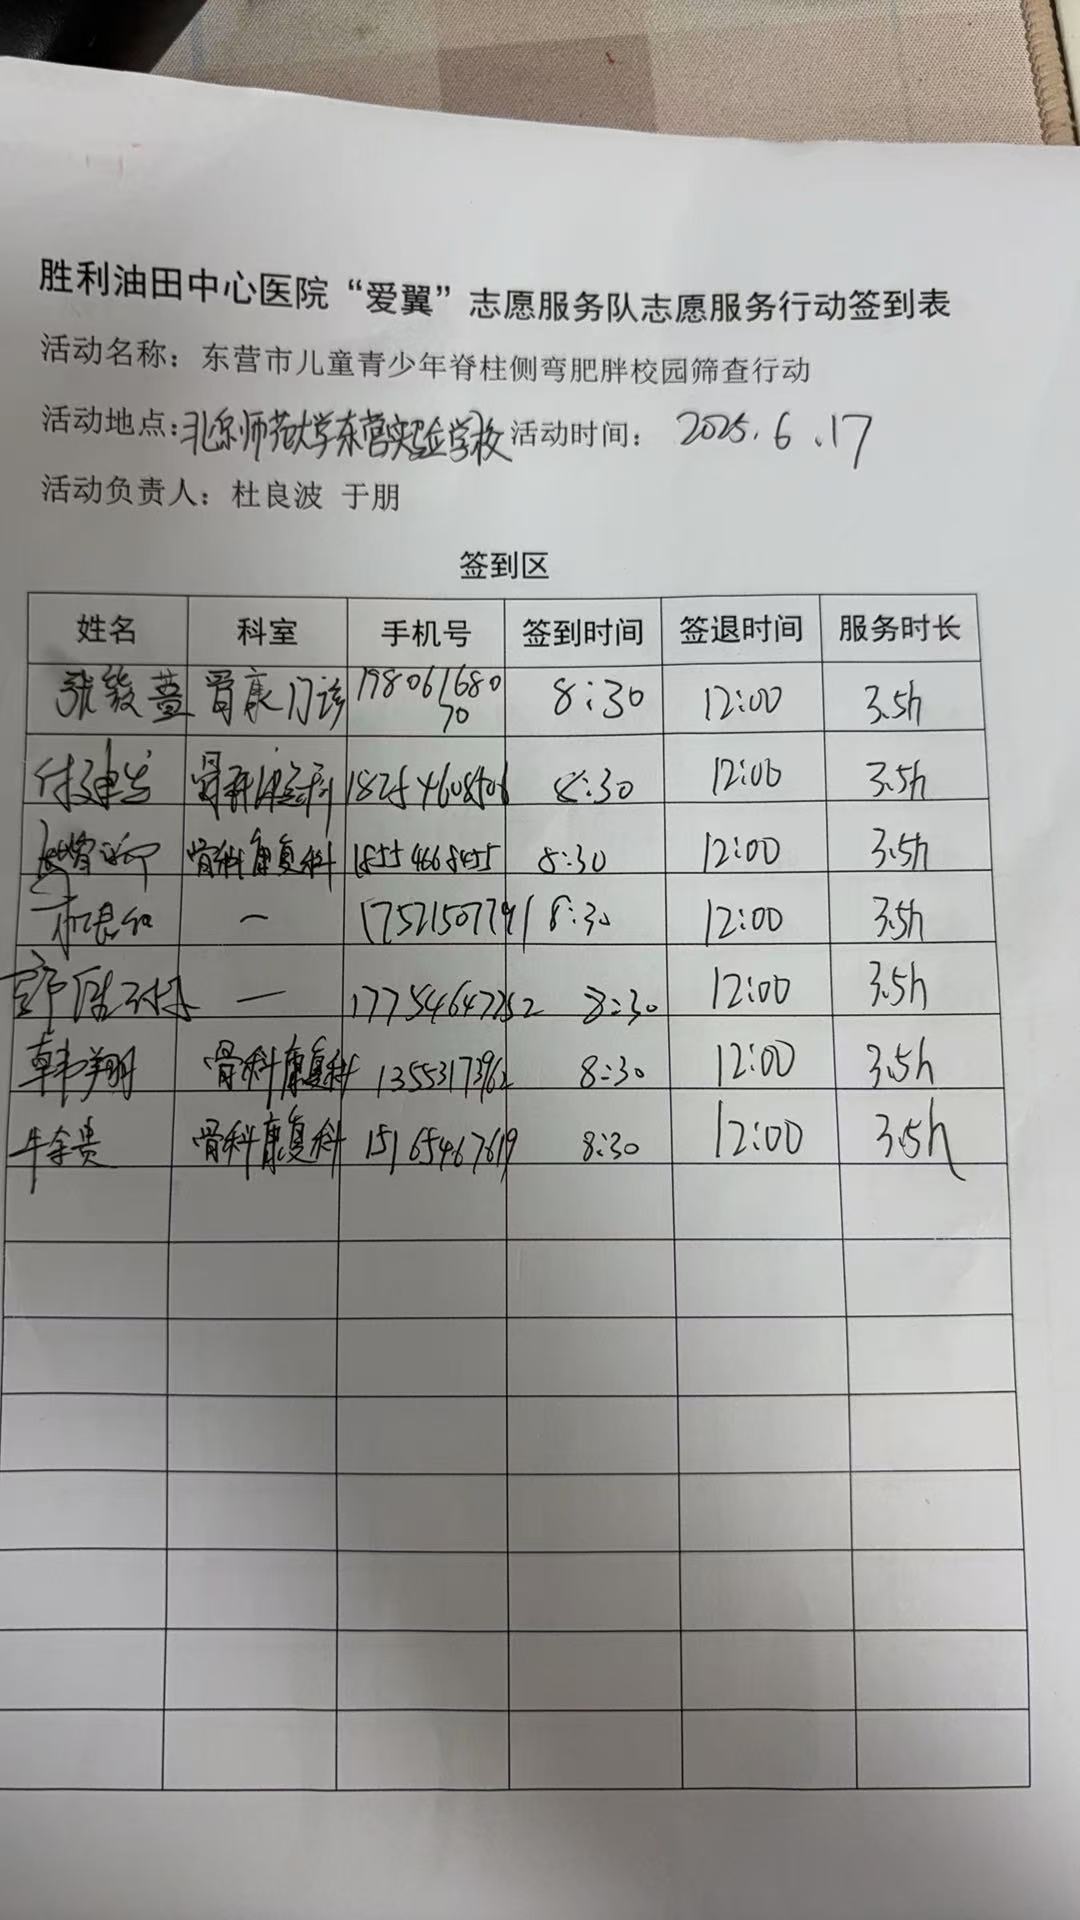 胜利油田中心医院“爱翼”志愿服务队志愿服务行动签到表
活动名称：东营市儿童青少年脊柱侧弯肥胖校园筛查行动
活动地点：北京师范大学东营实验学校 活动时间： 2025.6.17
活动负责人：杜良波 于朋
签到区
姓名 科室 手机号 签到时间 签退时间 服务时长
张 骨康门诊 19806168070 8:30 12:00 3.5h
付建 骨科 8:30 12:00 3.5h
骨科康复科 18554668455 8:30 12:00 3.5h
— 17521507791 8:30 12:00 3.5h
— 17754647252 8:30 12:00 3.5h
韩翔 骨科康复科 13553173962 8:30 12:00 3.5h
牛余贵 骨科康复科 15165467619 8:30 12:00 3.5h